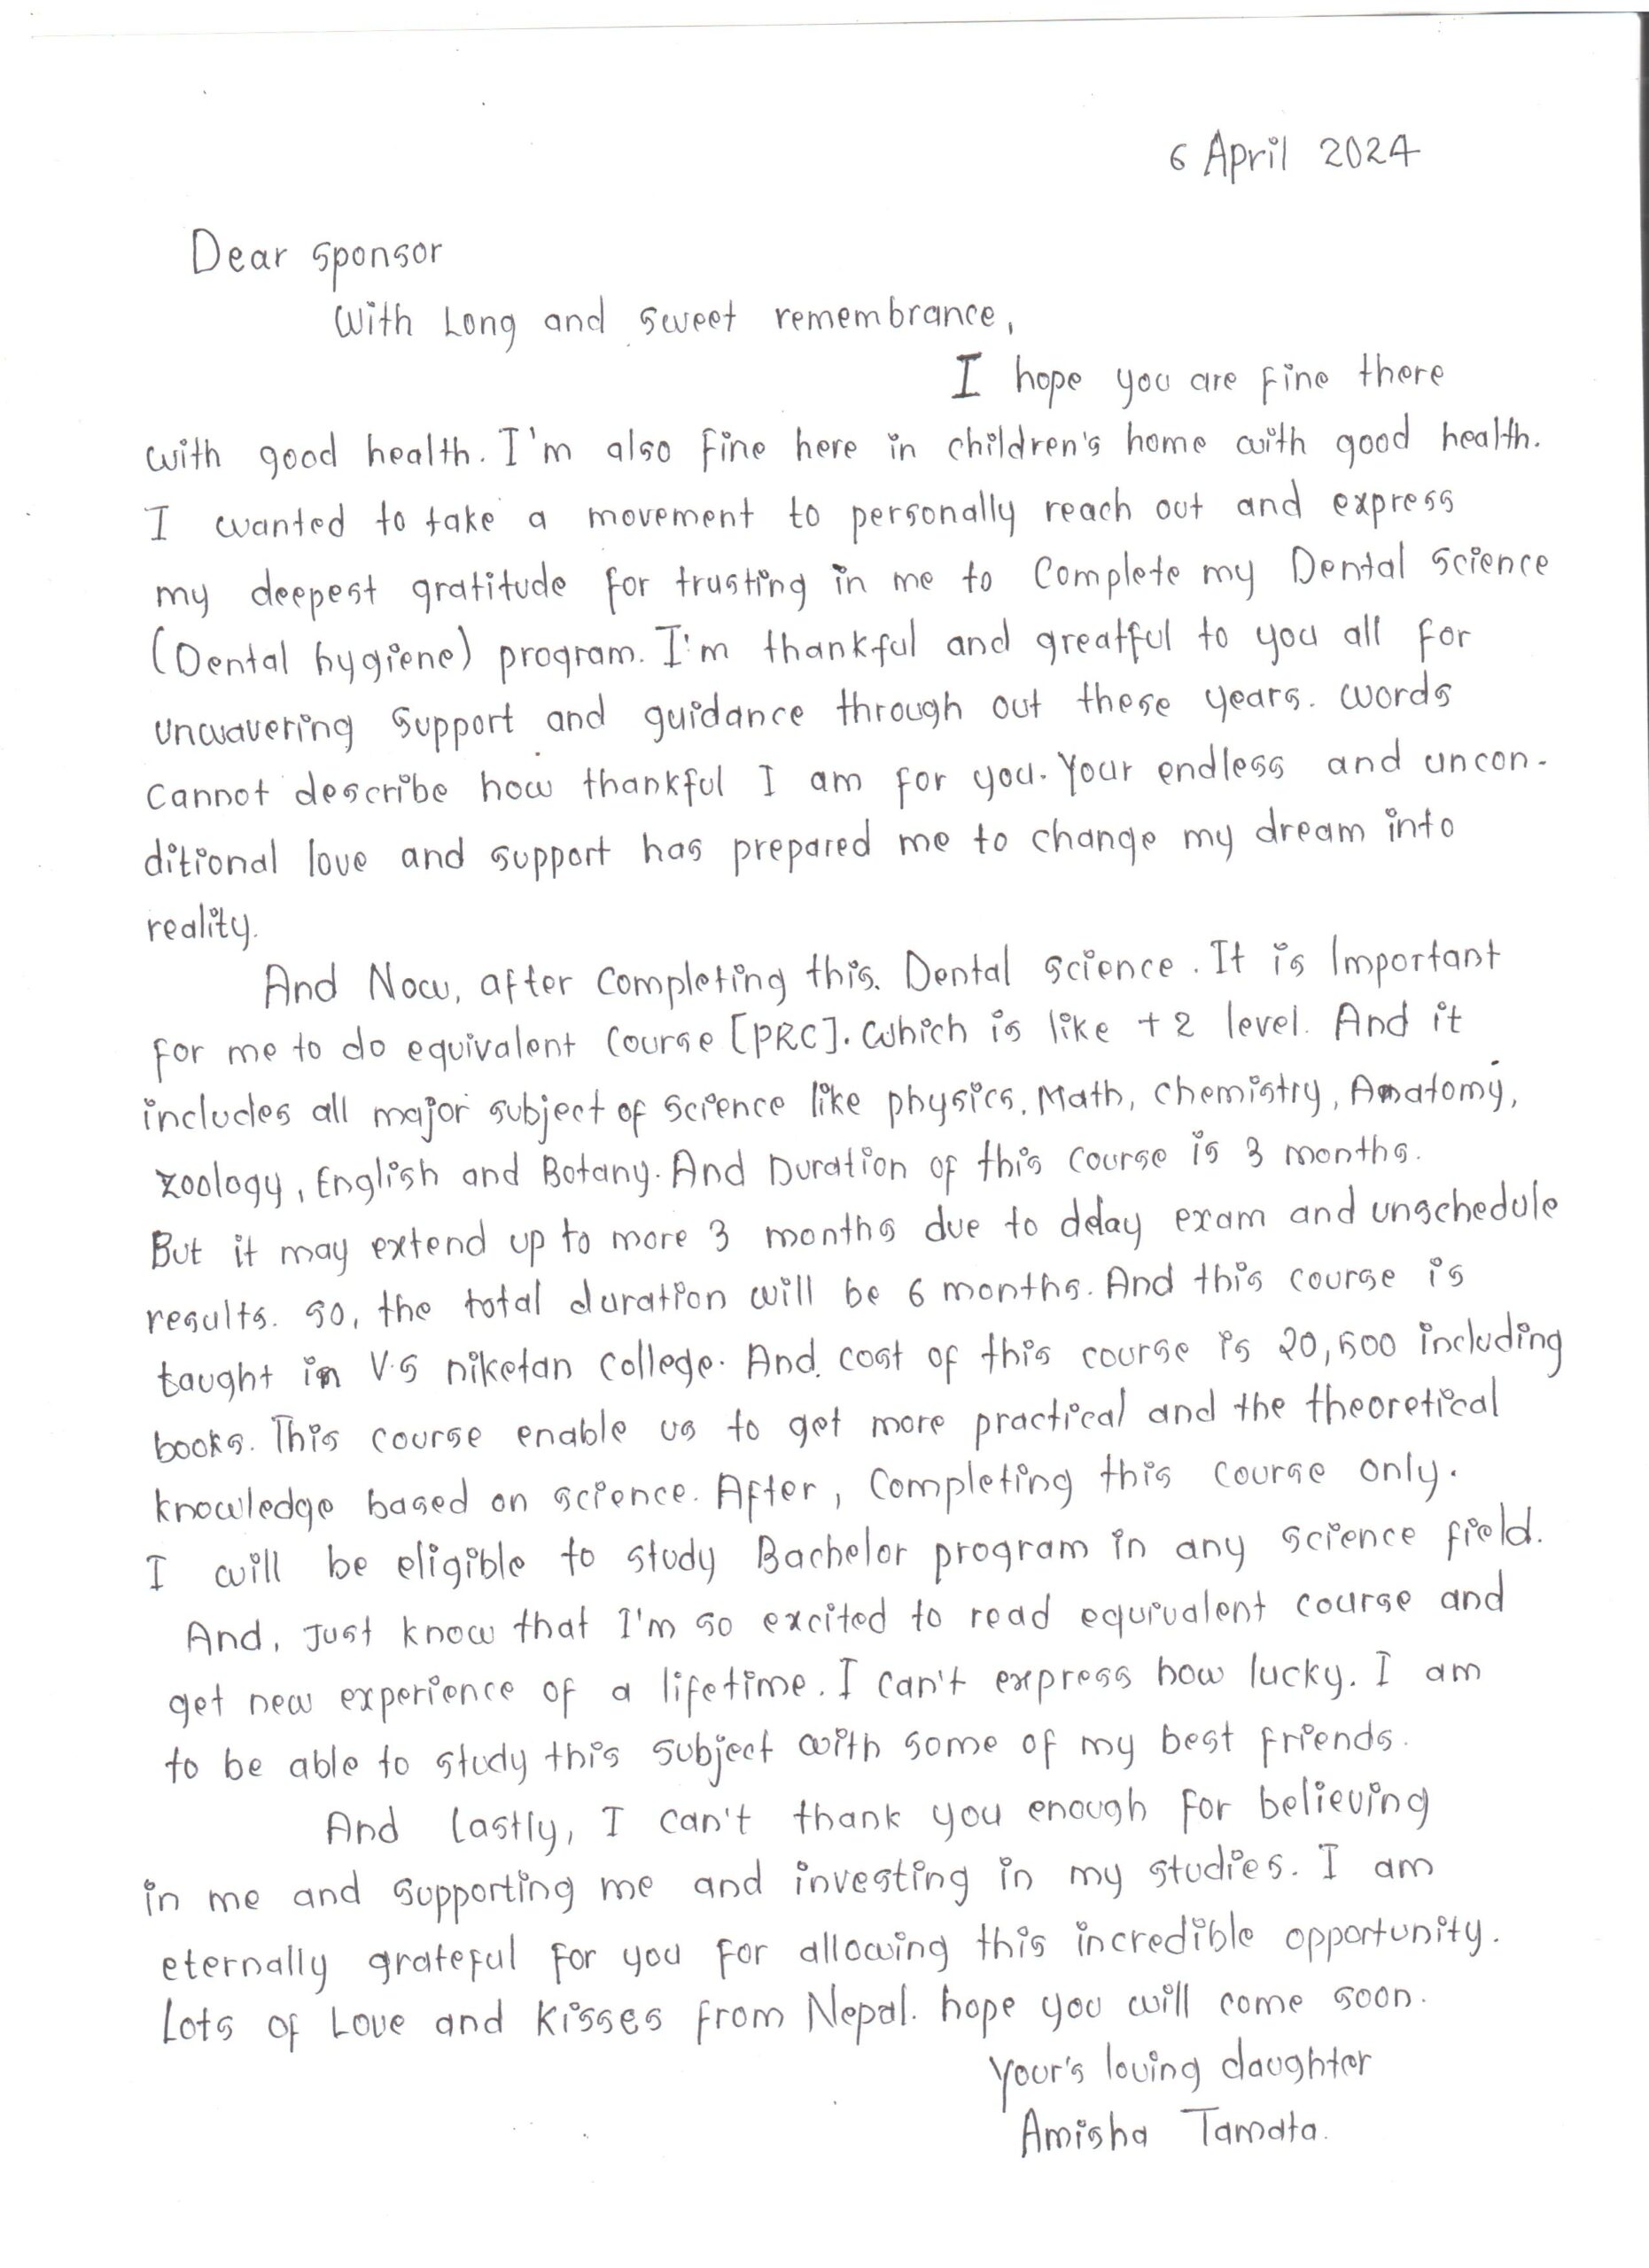 6 April 2024
Dear sponsor
With Long and sweet remembrance,
I hope you are fine there
with good health. I'm also fine here in children's home with good health.
I wanted to take a movement to personally reach out and express
my deepest gratitude for trusting in me to Complete my Dental Science
(Dental hygiene) program. I'm thankful and greatful to you all for
unwavering support and guidance through out these years. words
cannot describe how thankful I am for you. Your endless and uncon-
ditional love and support has prepared me to change my dream into
reality.
And Now, after completing this. Dental science. It is Important
for me to do equivalent Course [PRC]. Which is like +2 level. And it
includes all major subject of science like physics, Math, chemistry, Anatomy,
zoology, English and Botany. And Duration of this course is 3 months.
But it may extend up to more 3 months due to delay exam and unschedule
results. so, the total duration will be 6 months. And this course is
taught in V.S niketan college. And. cost of this course is 20,500 including
books. This course enable us to get more practical and the theoretical
knowledge based on science. After, Completing this course only.
I will be eligible to study Bachelor program in any science field.
And, Just know that I'm so excited to read equivalent course and
get new experience of a lifetime. I can't express how lucky. I am
to be able to study this subject with some of my best friends.
And lastly, I can't thank you enough for believing
in me and supporting me and investing in my studies. I am
eternally grateful for you for allowing this incredible opportunity.
Lots of Love and kisses from Nepal. hope you will come soon.
Your's loving daughter
Amisha Tamata.